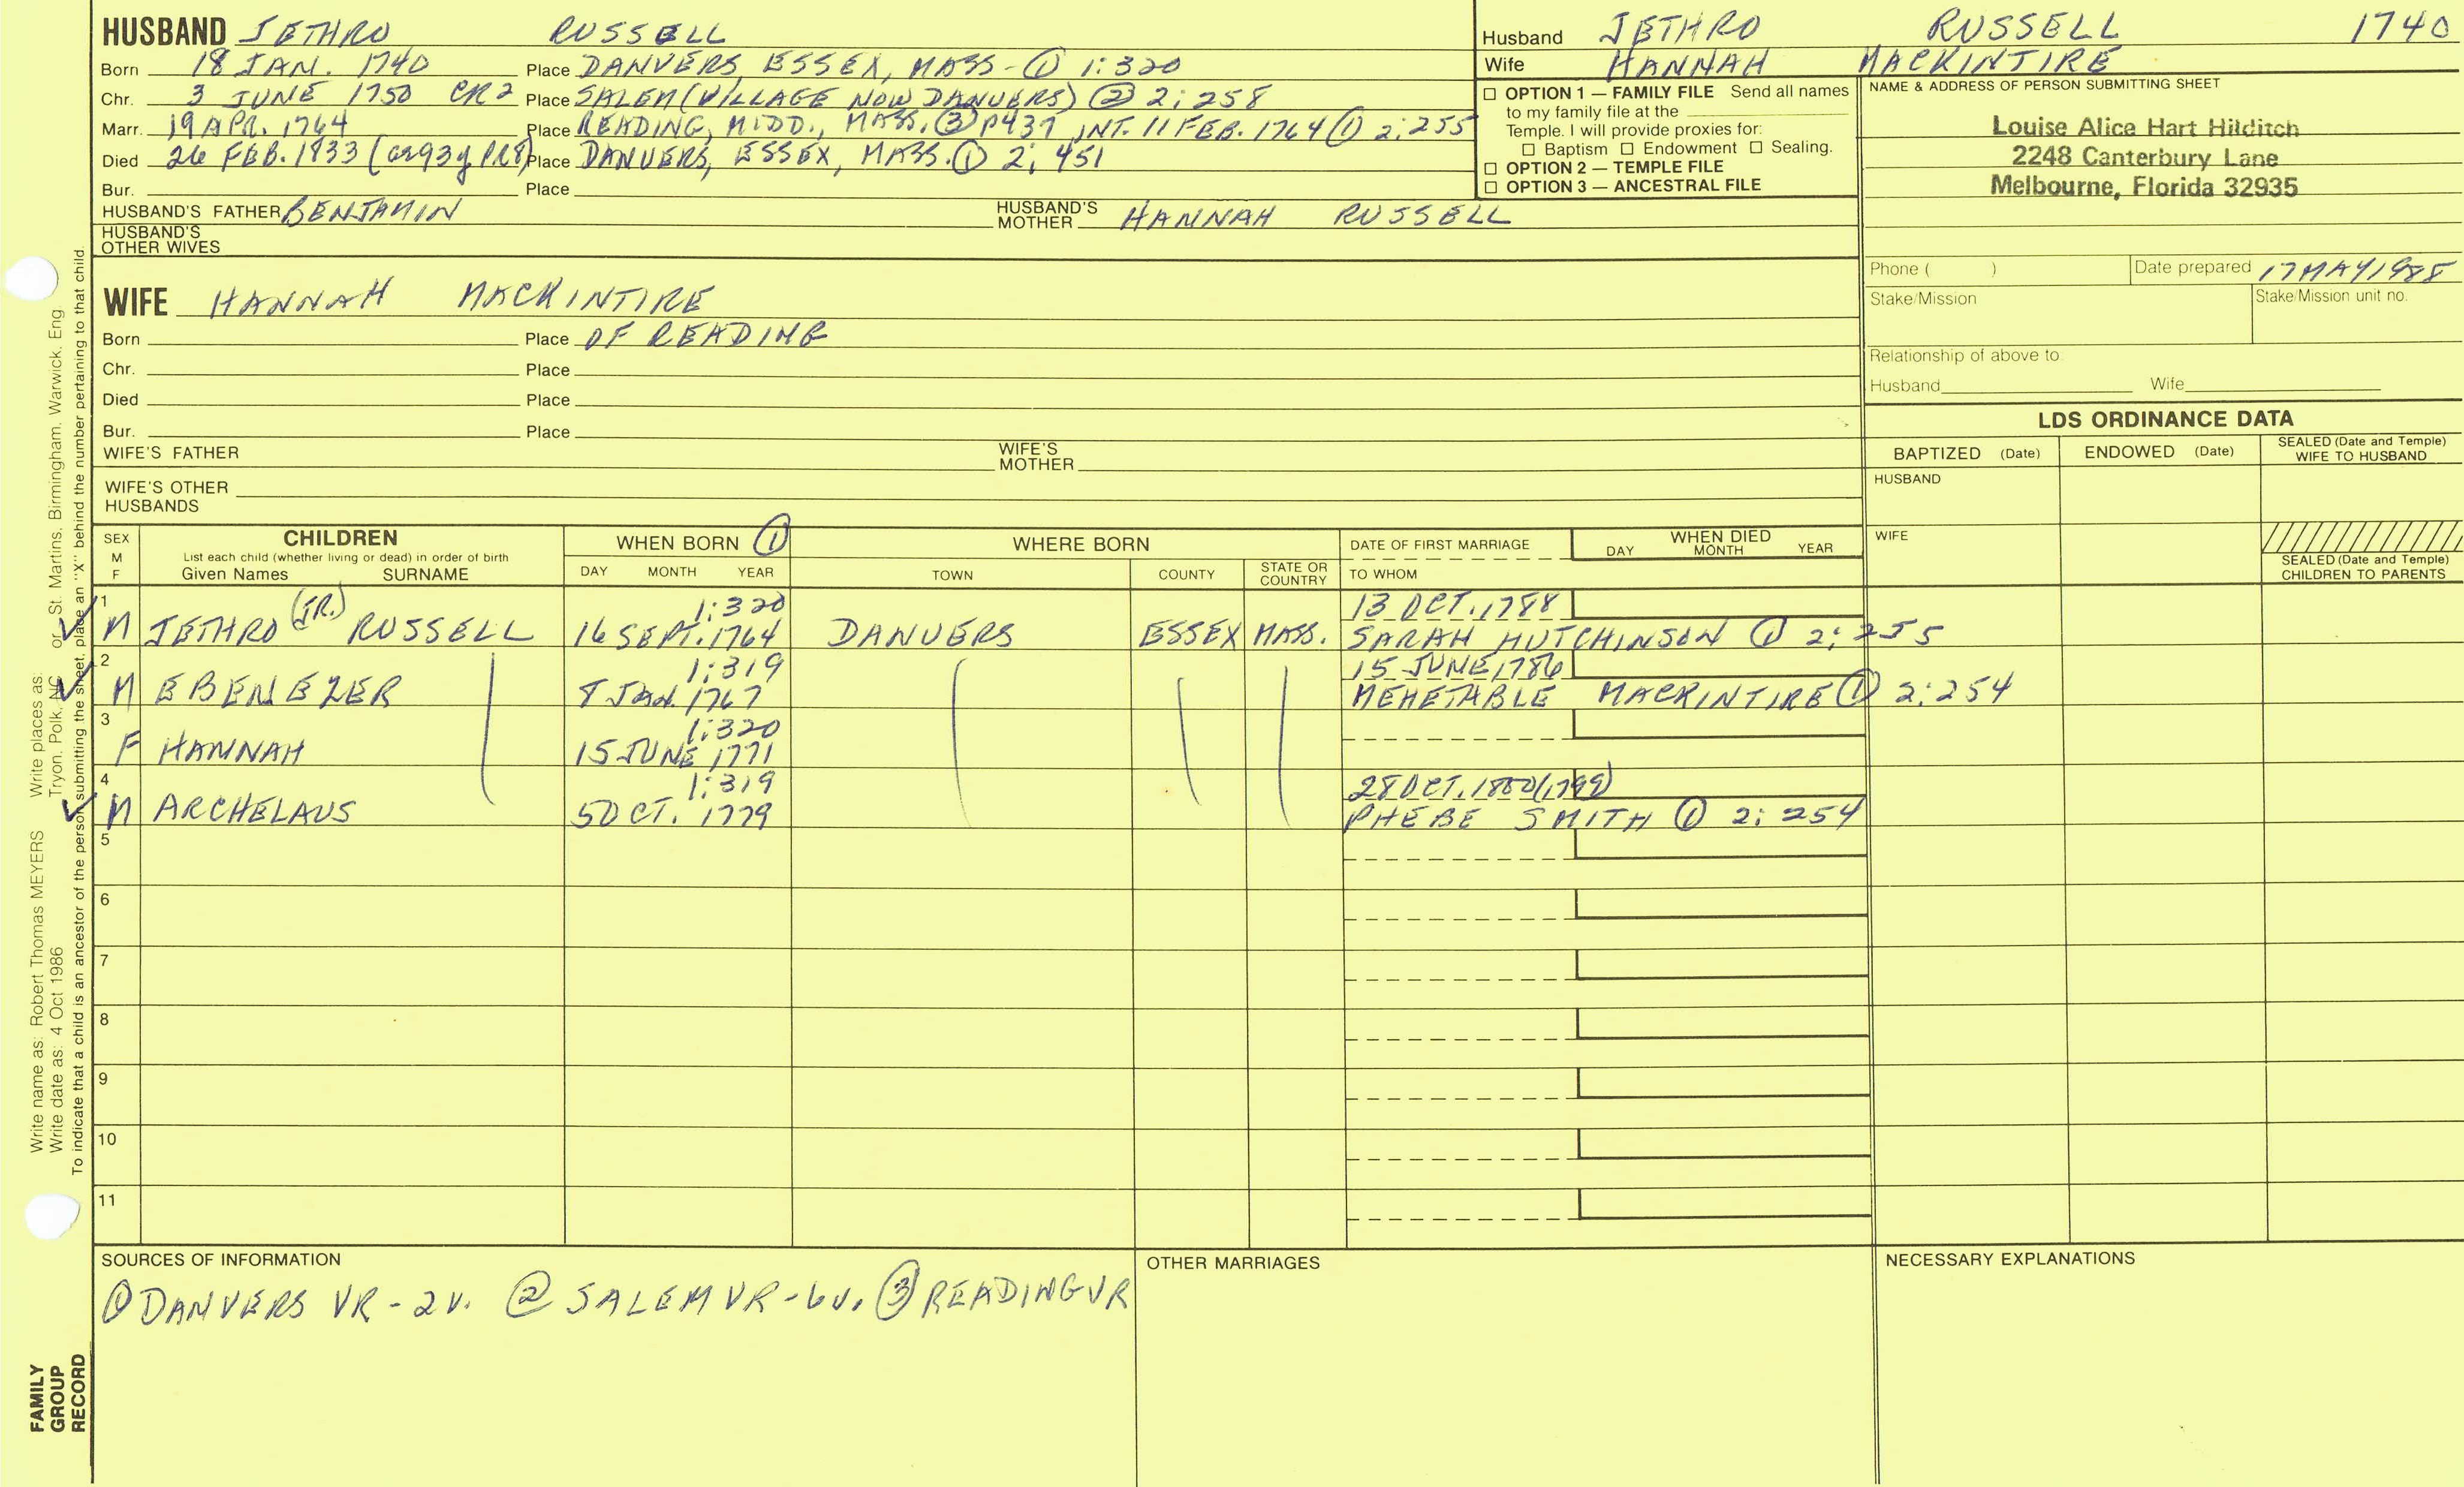 HUSBAND JETHRO RUSSELL
Born 18 JAN. 1740 Place DANVERS, ESSEX, MASS - ① 1:320
Chr. 3 JUNE 1750 CR2 Place SALEM (VILLAGE NOW DANVERS) ② 2:258
Marr. 19 APR. 1764 Place READING, MIDD., MASS. ③ P437 INT. 11 FEB. 1764 ① 2:255
Died 26 FEB. 1833 (ag93y PR8) Place DANVERS, ESSEX, MASS. ① 2:451
Bur. Place
HUSBAND'S FATHER BENJAMIN HUSBAND'S MOTHER HANNAH RUSSELL
HUSBAND'S OTHER WIVES
Husband JETHRO RUSSELL 1740
Wife HANNAH MACKINTIRE
☐ OPTION 1 — FAMILY FILE Send all names
to my family file at the
Temple. I will provide proxies for:
☐ Baptism ☐ Endowment ☐ Sealing.
☐ OPTION 2 — TEMPLE FILE
☐ OPTION 3 — ANCESTRAL FILE
NAME & ADDRESS OF PERSON SUBMITTING SHEET
Louise Alice Hart Hilditch
2248 Canterbury Lane
Melbourne, Florida 32935
Phone ( ) Date prepared 17 MAY 1988
Stake/Mission Stake/Mission unit no.
Relationship of above to
Husband Wife
WIFE HANNAH MACKINTIRE
Born Place OF READING
Chr. Place
Died Place
Bur. Place
WIFE'S FATHER WIFE'S MOTHER
WIFE'S OTHER
HUSBANDS
LDS ORDINANCE DATA
BAPTIZED (Date) ENDOWED (Date) SEALED (Date and Temple) WIFE TO HUSBAND
HUSBAND
WIFE
SEALED (Date and Temple) CHILDREN TO PARENTS
SEX M F
CHILDREN
List each child (whether living or dead) in order of birth
Given Names SURNAME
WHEN BORN ①
DAY MONTH YEAR
WHERE BORN
TOWN COUNTY STATE OR COUNTRY
DATE OF FIRST MARRIAGE
TO WHOM
WHEN DIED
DAY MONTH YEAR
1 (JR.) 1:320 13 OCT. 1788
M JETHRO RUSSELL 16 SEPT. 1764 DANVERS ESSEX MASS. SARAH HUTCHINSON ① 2:255
2 1:319 15 JUNE 1786
M EBENEZER 8 JAN. 1767 MEHETABLE MACKINTIRE ① 2:254
3 1:320
F HANNAH 15 JUNE 1771
4 1:319 28 OCT. 1800 (1799)
M ARCHELAUS 5 OCT. 1779 PHEBE SMITH ① 2:254
5
6
7
8
9
10
11
SOURCES OF INFORMATION
① DANVERS VR - 2V. ② SALEM VR - 6V. ③ READING VR
OTHER MARRIAGES
NECESSARY EXPLANATIONS
Write name as: Robert Thomas MEYERS Write places as: Tryon, Polk, NC or St. Martins, Birmingham, Warwick, Eng
Write date as: 4 Oct 1986
To indicate that a child is an ancestor of the person submitting the sheet, place an "X" behind the number pertaining to that child.
FAMILY
GROUP
RECORD